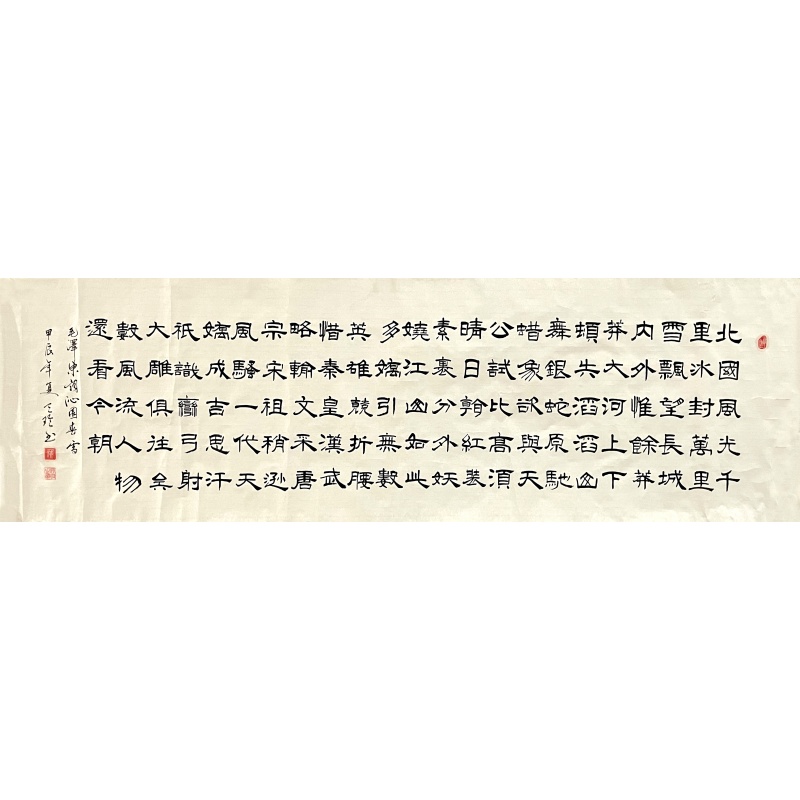 北國風光千
里冰封萬里
雪飄望長城
内外惟餘莽
莽大河上下
頓失滔滔山
舞銀蛇原馳
蜡象欲與天
公試比高須
晴日看紅裝
素裹分外妖
嬈江山如此
多嬌引無數
英雄競折腰
惜秦皇漢武
略輸文采唐
宗宋祖稍遜
風騷一代天
嬌成吉思汗
祇識彎弓射
大雕俱往矣
數風流人物
還看今朝
毛澤東詞沁園春雪
甲辰年夏